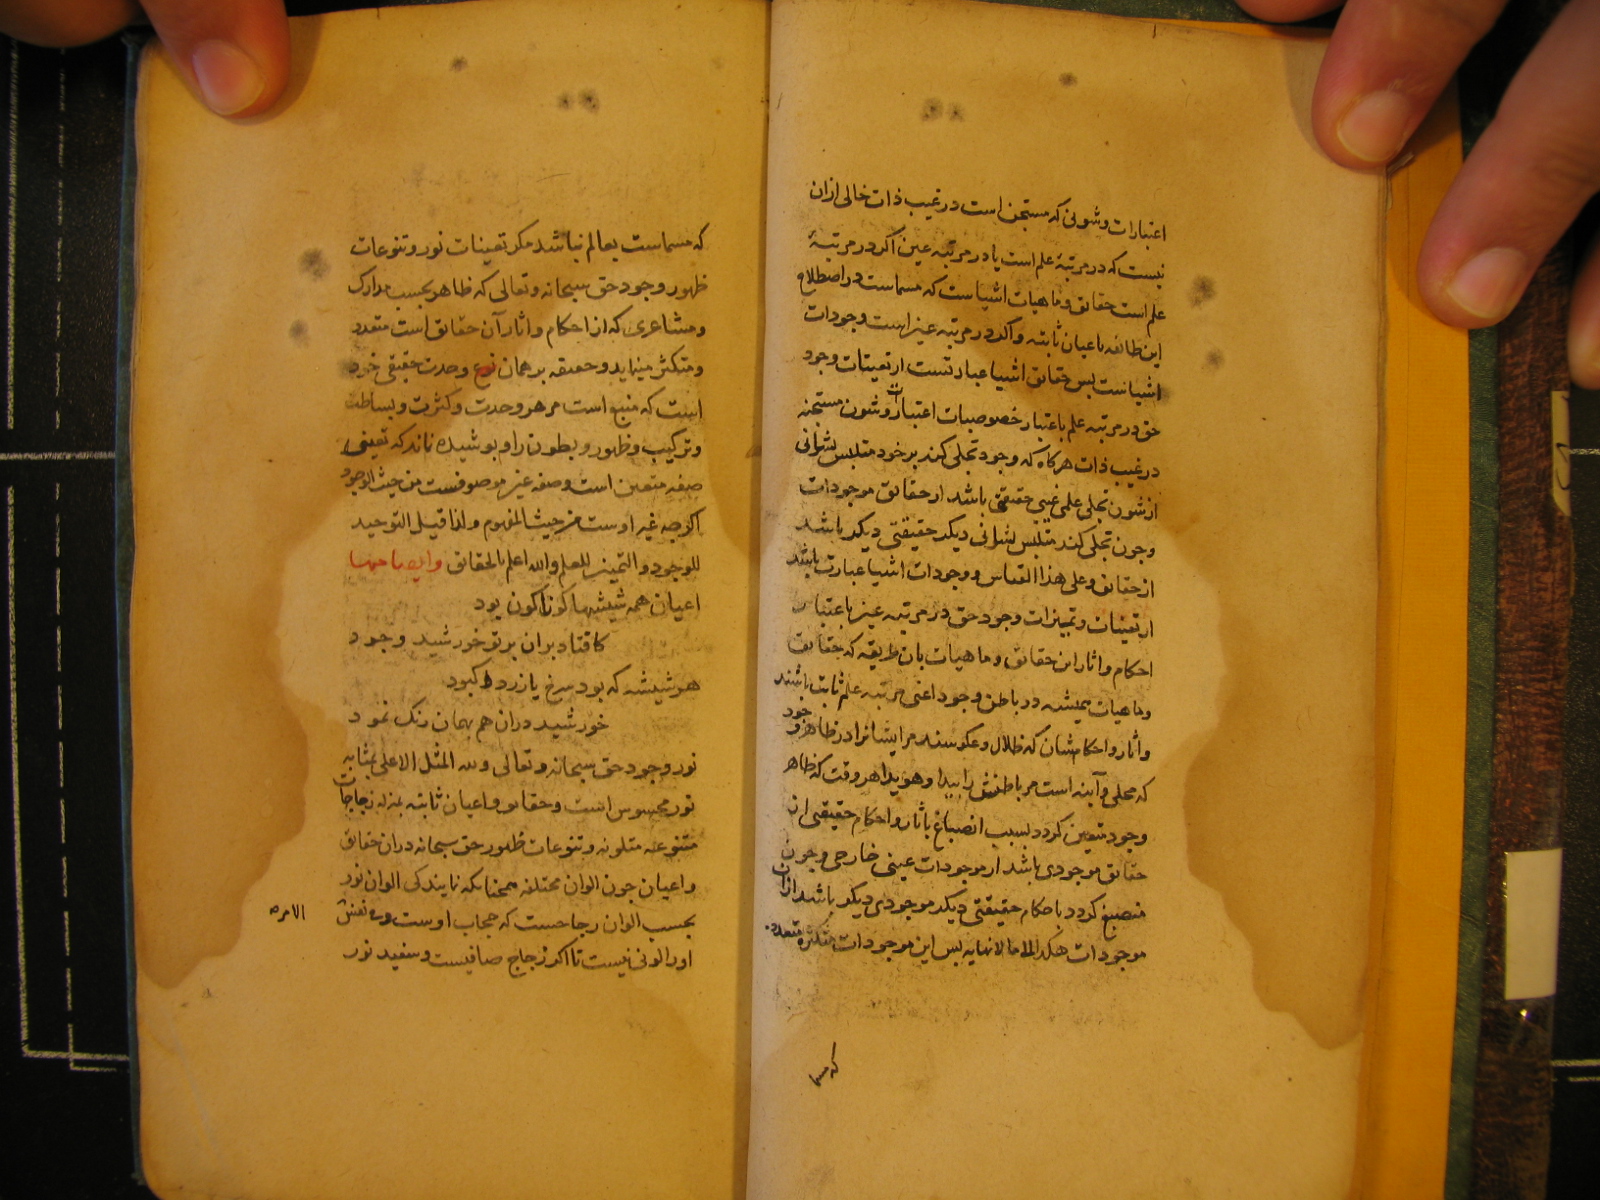 اعتبارات وشونی که مستجن است در غیب ذات خالی ازان
نیست که در مرتبهٔ علم است یا در مرتبه عین اکر در مرتبهٔ
علم است حقائق وماهیات اشیاست که مسماست در اصطلاح
این طائفه باعیان ثابته واکر در مرتبه عین است وجودات
اشیاست بس حقائق اشیا عبارتست از تعینات وجود
حق در مرتبه علم باعتبار خصوصیات اعتبارات وشون مستجنه
در غیب ذات هرکاه که وجود تجلی کند بر خود متلبس بشانی
از شون تجلی علمی غیبی حقیقتی باشد از حقائق موجودات
وجون تجلی کند متلبس بشانی دیکر حقیقتی دیکر باشد
از حقائق وعلی هذا القیاس ووجودات اشیا عبارت باشد
از تعینات وتمیزات وجود حق در مرتبه عین باعتبار
احکام واثار این حقائق وماهیات بان طریقه که حقائق
وماهیات همیشه در باطن وجود اعنی مرتبه علم ثابت باشند
واثار واحکامشان که ظلال وعکوسند مر ایشانرا در ظاهر وجود
که مجلی وآینه است مر باطنش را پیدا وهویدا هر وقت که ظاهر
وجود متعین کردد بسبب انصباغ باثار واحکام حقیقتی از
حقائق موجودی باشد از موجودات عینی خارجی وجون
منصبغ کردد باحکام حقیقتی دیکر موجودی دیکر باشد ازان
موجودات هکذا الی مالانهایه بس این موجودات متکثره متعدد
که مسما
که مسماست بعالم نباشد مکر تعینات نور وتنوعات
ظهور وجود حق سبحانه وتعالی که ظاهر بحسب مدارک
ومشاعری که از احکام واثار آن حقائق است متعدد
ومتکثر مینماید وحقیقه بر همان نوع وحدت حقیقی خود
است که منبع است مر هر وحدت وکثرت وبساطت
وترکیب وظهور وبطون را وبوشیده نماند که تعینی
صفه متعین است وصفه عین موصوفست من حیث الوجود
اکرچه غیر اوست من حیث المفهوم ولذا قیل التوحید
للوجود والتمیز للعلم والله اعلم بالحقائق وایضا منها
اعیان همه شیشهای کوناکون بود
کافتاد بران برتو خورشید وجود
هر شیشه که بود سرخ یا زرد وکبود
خورشید دران هم بهمان رنک نمود
نور وجود حق سبحانه وتعالی ولله المثل الاعلی بمثابه
نور محسوس است وحقائق واعیان ثابته بمنزله زجاجات
متنوعه متلونه وتنوعات ظهور حق سبحانه دران حقائق
واعیان جون الوان مختلفه همچنانکه نمایندکی الوان نور
بحسب الوان زجاجست که حجاب اوست ودر نفس
الامر
او را لونی نیست تا اکر زجاج صافیست وسفید نور